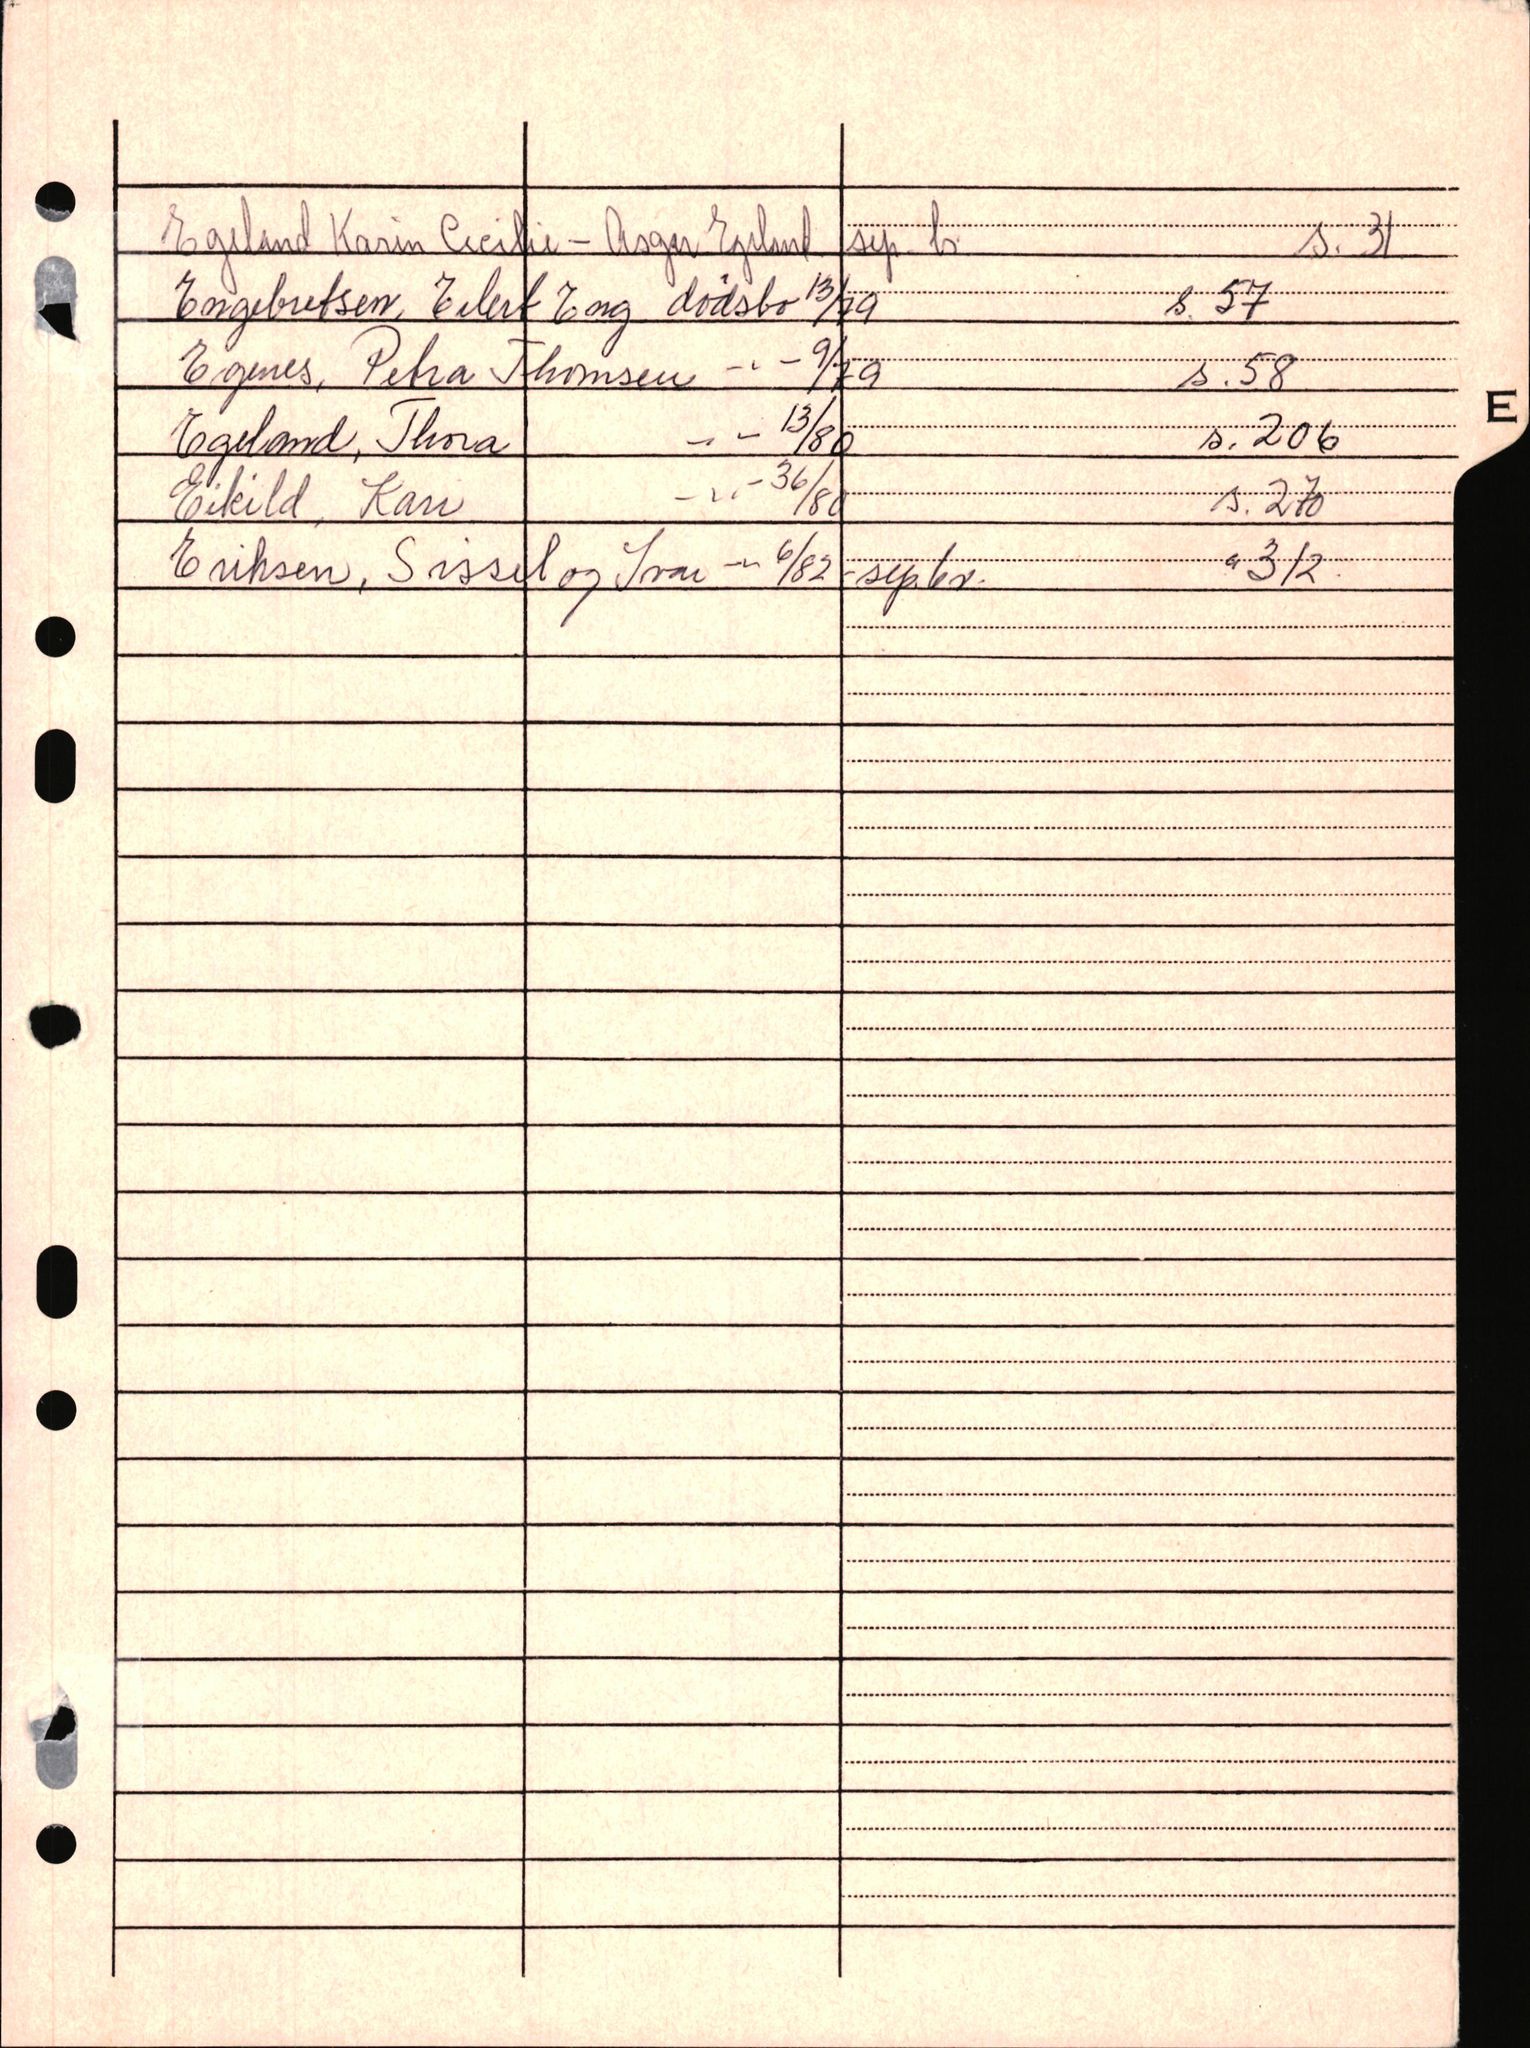 Egeland Karin Cecilie – Asger Egeland sep. b. s. 31
Engebretsen, Eilert Eng dödsbo 13/79 s. 57
Egenes, Petra Thomsen -„- 9/79 s. 58
E
Egeland, Thora -„- 13/80 s. 206
Eikild, Kari -„- 36/80 s. 270
Eriksen, Sissel og Ivar -„- 6/82 - sep.bo. " 312.